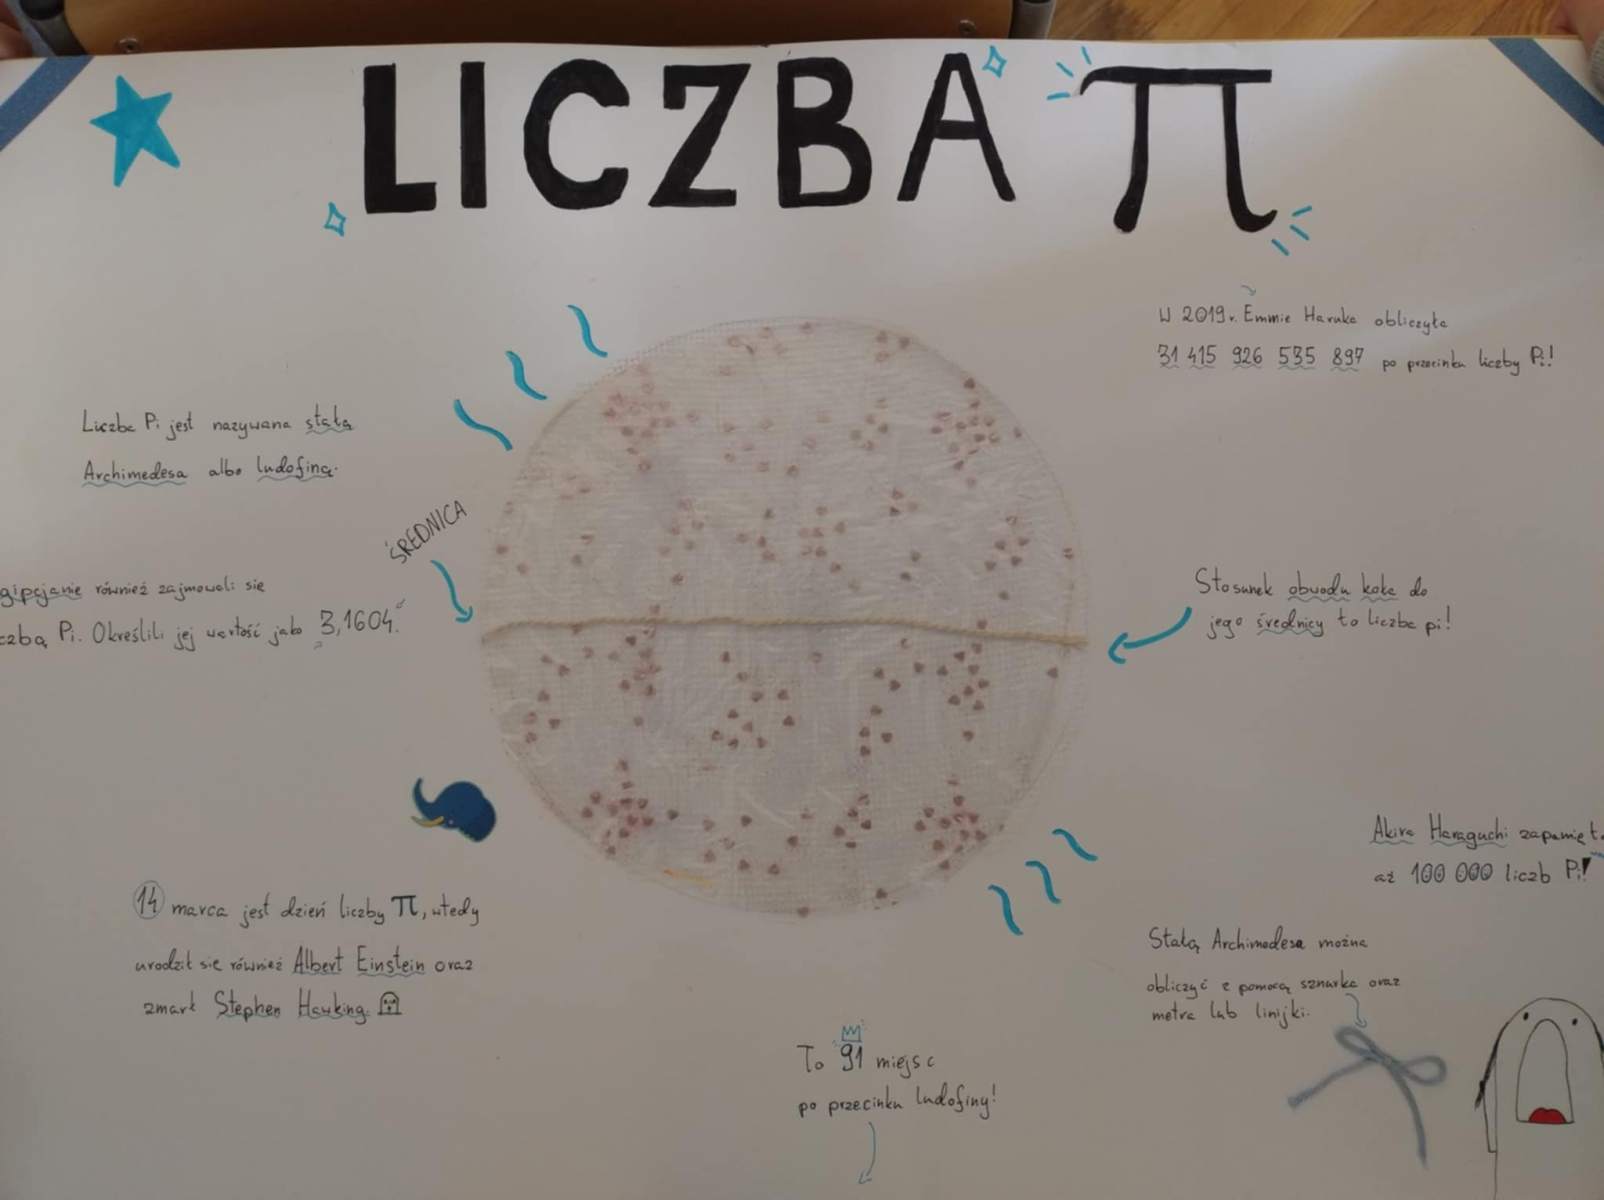 LICZBA π
W 2019r. Emmie Haruka obliczyła
31 415 926 535 897 po przecinku liczby Pi!
Liczba Pi jest nazywana stałą
Archimedesa albo ludofiną.
ŚREDNICA
gipcjanie również zajmowali się
czbą Pi. Określili jej wartość jako 3,1604.
Stosunek obwodu koła do
jego średnicy to liczba pi!
Akira Haraguchi zapamięt
aż 100 000 liczb Pi!
14 marca jest dzień liczby π, wtedy
urodził się również Albert Einstein oraz
zmarł Stephen Hawking.
Stałą Archimedesa można
obliczyć z pomocą sznurka oraz
metra lub linijki.
To 91 miejsc
po przecinku ludofiny!